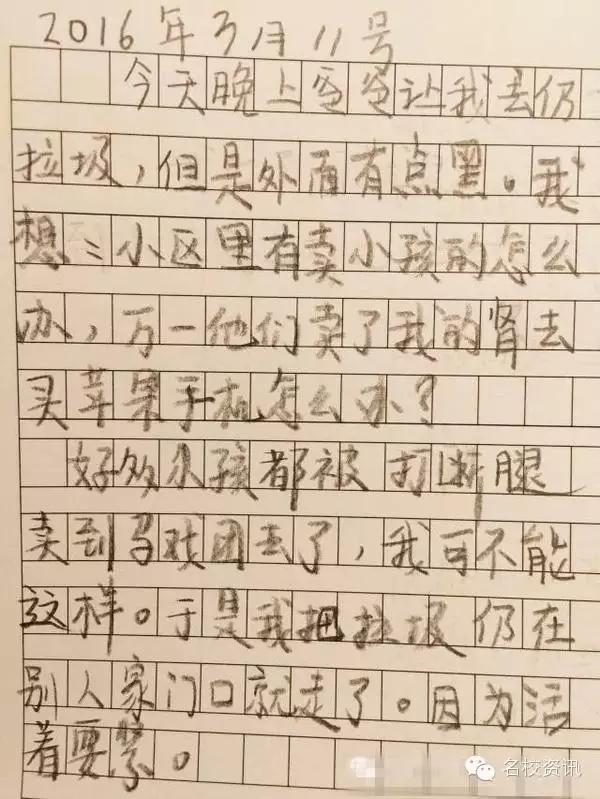 2016年3月11号
今天晚上爸爸让我去仍
拉圾，但是外面有点黑。我
想：小区里有卖小孩的怎么
办，万一他们卖了我的肾去
买苹果手机怎么办？
好多小孩都被打断腿
卖到马戏团去了，我可不能
这样。于是我把拉圾仍在
别人家门口就走了。因为活
着要紧。
名校资讯